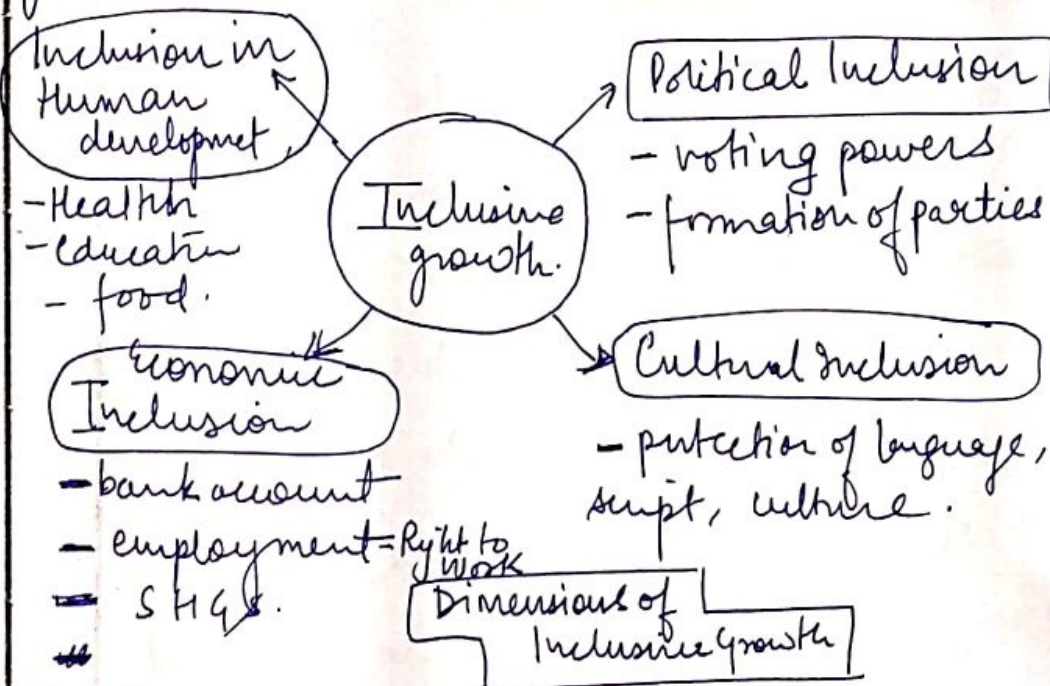 Inclusion in
Human
developmet
- Health
- education
- food.
Inclusive
growth.
Political Inclusion
- voting powers
- formation of parties
Economic
Inclusion
- bank account
- employment = Right to
work
- SHGs.
Cultural Inclusion
- protection of language,
script, culture.
Dimensions of
Inclusive Growth